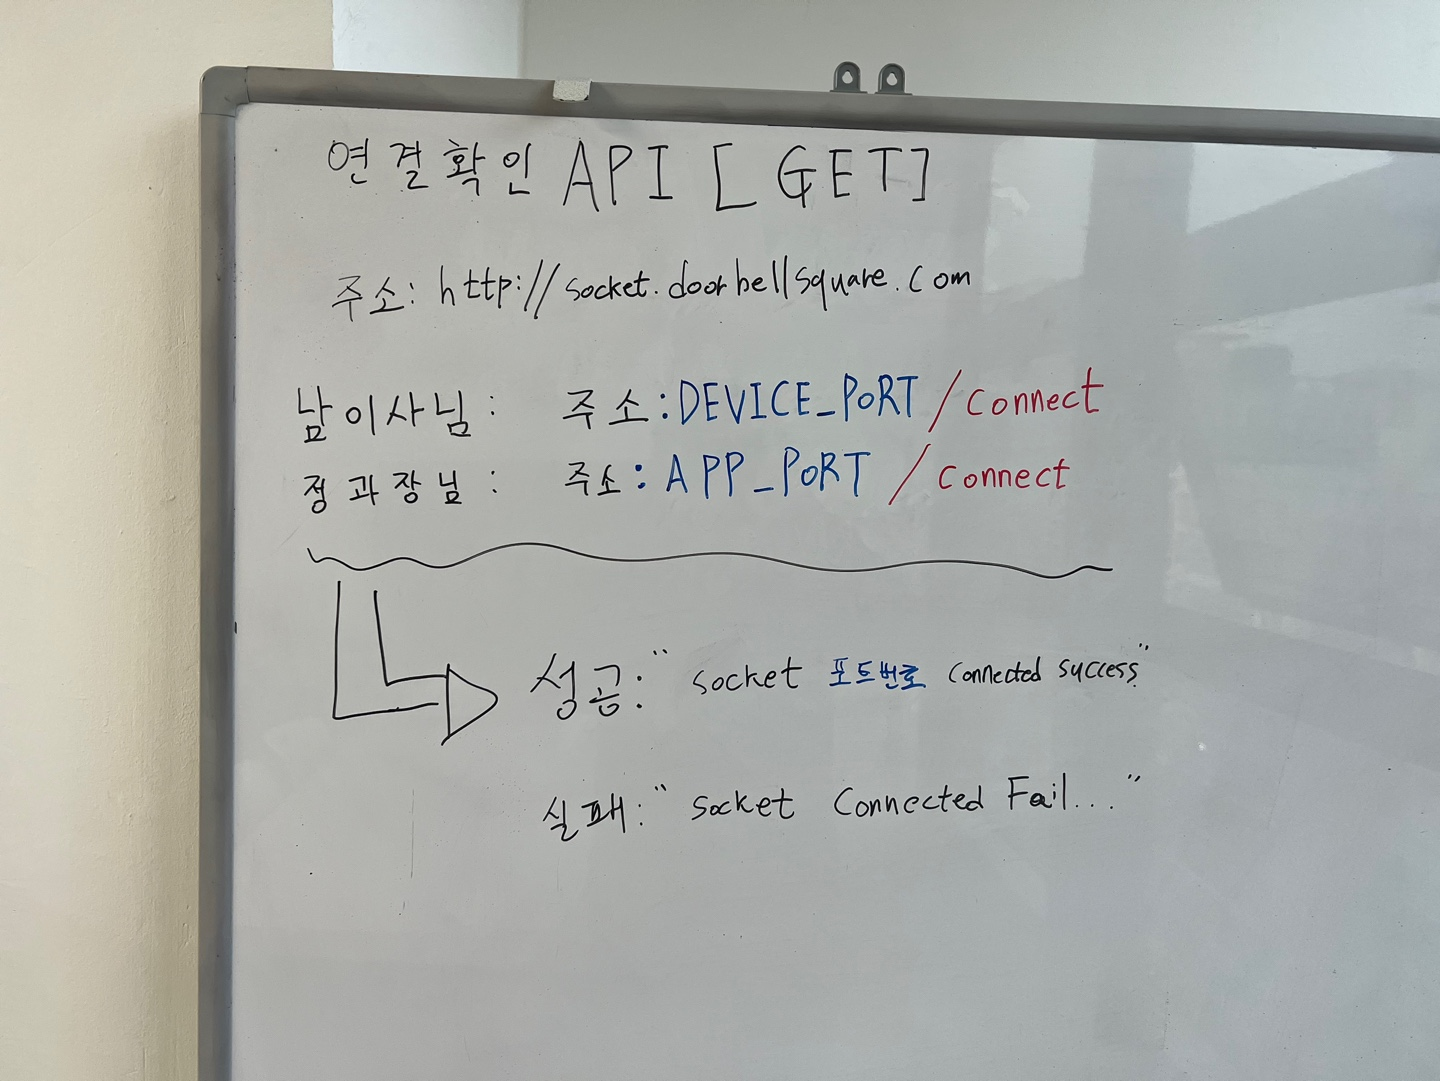 연결확인 API [GET]
주소: http://socket.doorbellsquare.com
남이사님 : 주소:DEVICE_PORT/connect
정과장님 : 주소:APP_PORT/connect
성공: "socket 포트번호 connected success"
실패: "socket connected Fail..."